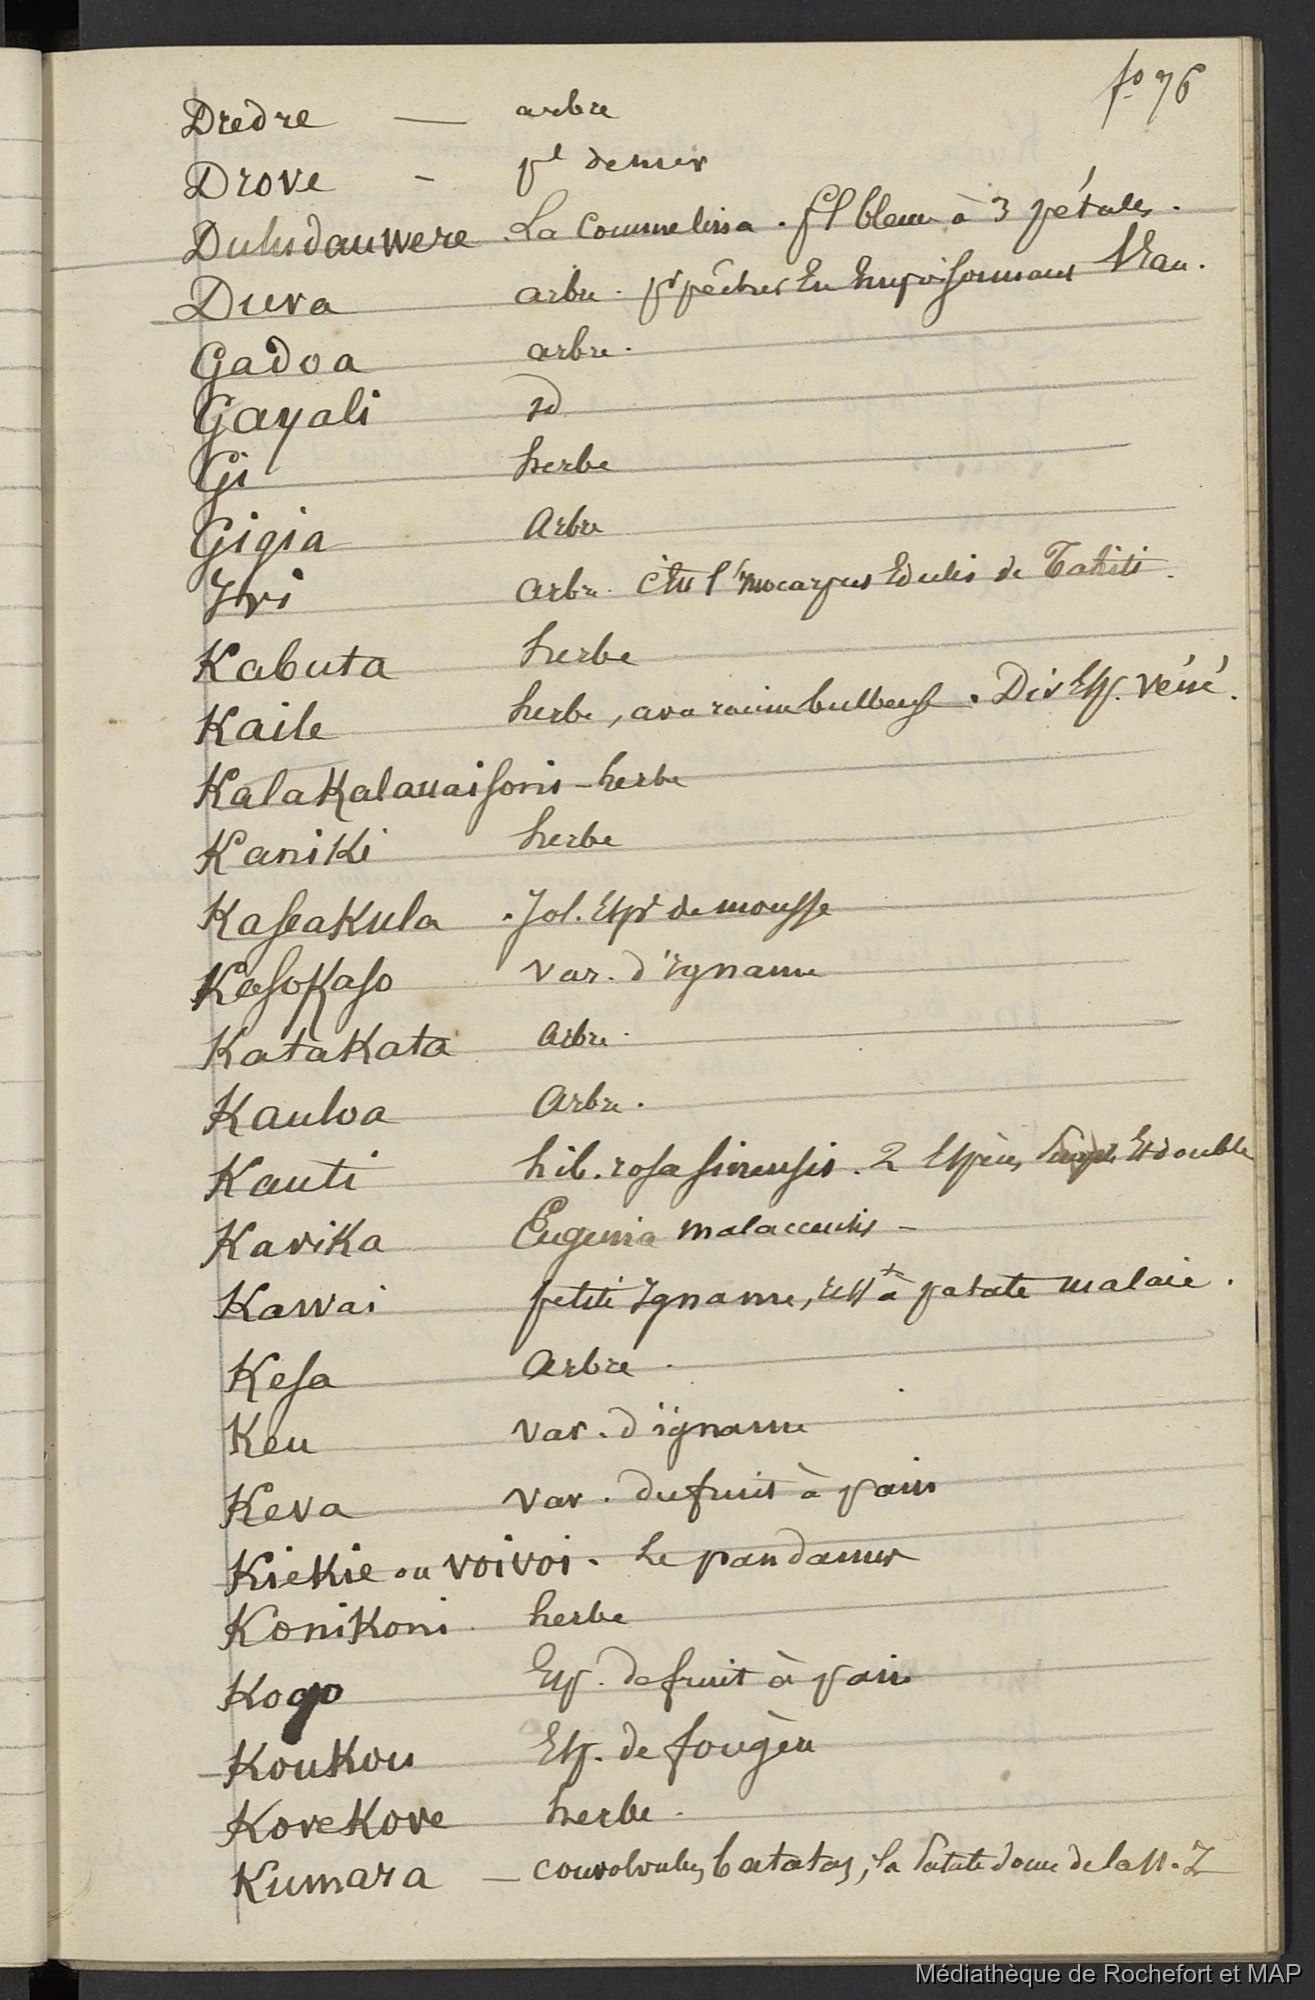 fo 76
Dredre — arbre
Drove - pl de mer
Duludauwere . La Commelina . fl bleue à 3 pétales.
Duva arbre . pr pêcher en empoisonnant l'eau.
Gadoa arbre.
Gayali id
Gi herbe
Gigia Arbre
Ivi arbre. c'est l'Inocarpus Edulis de Tahiti.
Kabuta herbe
Kaile herbe, av. racine bulbeuse . Div Esp. véné.
KalaKalauaisoni - herbe
KaniKi herbe
KaseaKula . Jol. Esp. de mousse
KasoKaso var. d'igname
KataKata Arbre.
Kauloa Arbre.
Kauti hib. rosa sinensis . 2 Espèces, Simple Et double
KaviKa Eugenia malaccensis -
Kawai petite Igname, à patate malaie.
Kesa Arbre.
Keu Var. d'igname
Keva Var. du fruit à pain
KieKie ou voivoi. Le pandanus
KoniKoni herbe
Kogo Esp. de fruit à pain
KouKou Esp. de fougère
KoreKore herbe.
Kumara — convolvulus batatas, la Patate douce de la N. Z
Médiathèque de Rochefort et MAP